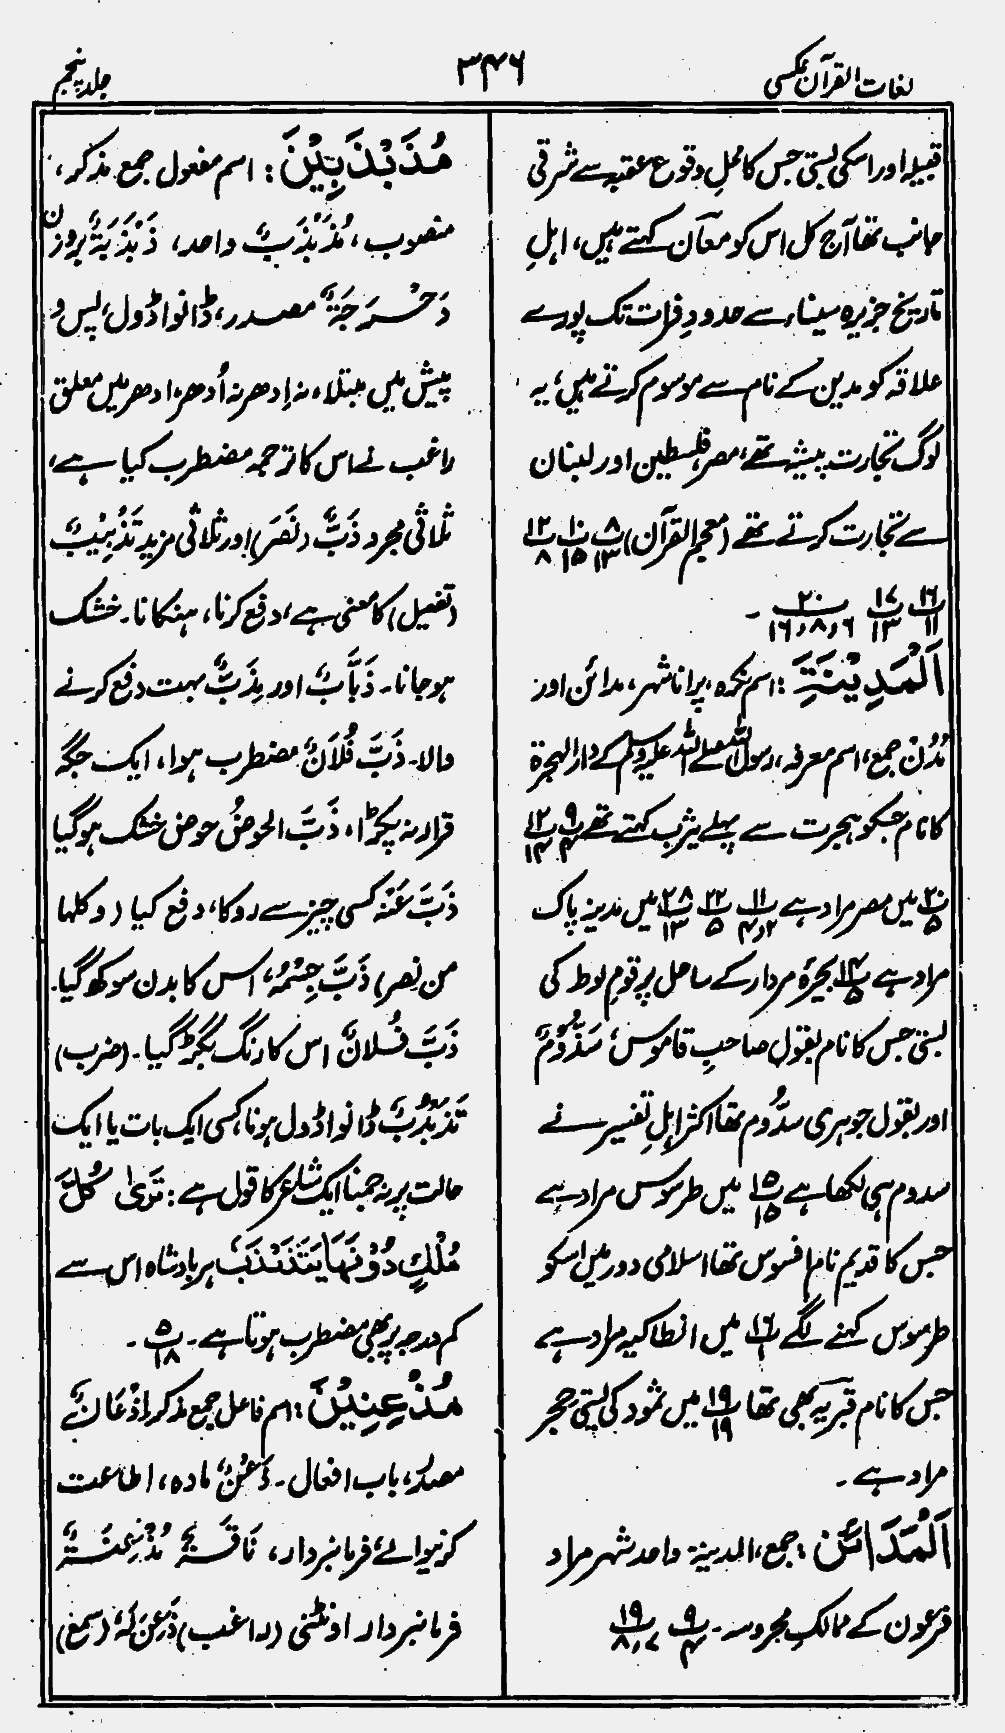 لغات القرآن عکسی
۳۴۶
جلد پنجم
قبیلہ اور اسکی بستی جس کا محلِ وقوع عقبہ سے شرقی
جانب تھا آج کل اس کو معآن کہتے ہیں، اہلِ
تاریخ جزیرہ سیناء سے حدودِ فرات تک پورے
علاقہ کو مدین کے نام سے موسوم کرتے ہیں، یہ
لوگ تجارت پیشہ تھے، مصر، فلسطین اور لبنان
سے تجارت کرتے تھے (معجم القرآن) پ۸/۱۳ پ۱۰/۱۵ پ۱۲/۸
پ۱۶/۱۱ پ۱۷/۱۳ پ۲۰/۶،۸،۱۶ ۔
اَلْمَدِیْنَةِ: اسم نکرہ، پرانا شہر، مدائن اور
مُدُنٌ جمع، اسم معرفہ، رسول اللہ صلے اللہ علیہ وسلم کے دار الہجرة
کا نام جسکو ہجرت سے پہلے یثرب کہتے تھے پ۹/۴ پ۱۲/۱۴
پ۲۰/۵ میں مصر مراد ہے پ۱۱/۲،۴ پ۲۲/۵ پ۲۸/۱۳ میں مدینہ پاک
مراد ہے پ۱۴/۵ بحیرۂ مردار کے ساحل پر قومِ لوط کی
بستی جس کا نام بقول صاحبِ قاموس سَذُوْمٌ
اور بقول جوہری سدُوم تھا اکثر اہلِ تفسیر نے
سدوم ہی لکھا ہے پ۱۵/۱۵ میں طرسوس مراد ہے
جس کا قدیم نام افسوس تھا اسلامی دور میں اسکو
طرسوس کہنے لگے پ۱۶/۱ میں انطاکیہ مراد ہے
جس کا نام قبریہ بھی تھا پ۱۹/۱۹ میں ثمود کی بستی حجر
مراد ہے۔
اَلْمَدَائِنِ: جمع، المدینۃ واحد شہر مراد
فرعون کے ممالکِ محروسہ۔ پ۹/۴ پ۱۹/۷،۸
مُذَبْذَبِیْنَ: اسم مفعول جمع مذکر،
منصوب، مُذَبْذَبٌ واحد، ذَبْذَبَةٌ بروزن
دَحْرَجَةٌ مصدر، ڈانواڈول، پس و
پیش میں مبتلاء نہ اِدھر نہ اُدھر، ادھر میں معلق
راغب نے اس کا ترجمہ مضطرب کیا ہے،
ثلاثی مجرد ذَبٌّ (نَصَرَ) اور ثلاثی مزید تَذْبِیْبٌ
(تفعیل) کا معنی ہے، دفع کرنا، ہنکانا۔ خشک
ہو جانا۔ ذَبَّابٌ اور مِذَبٌّ بہت دفع کرنے
والا۔ ذَبَّ فُلَانٌ مضطرب ہوا، ایک جگہ
قرار نہ پکڑا، ذَبَّ الحوضُ حوض خشک ہو گیا
ذَبَّ عَنْہُ کسی چیز سے روکا، دفع کیا (وکلہا
من نصر) ذَبَّ جِسْمُہٗ، اس کا بدن سوکھ گیا۔
ذَبَّ فُلانٌ اس کا رنگ بگڑ گیا۔ (ضرب)
تَذَبْذُبٌ ڈانواڈول ہونا، کسی ایک بات یا ایک
حالت پر نہ جمنا ایک شاعر کا قول ہے: تَریٰ کُلَّ
مُلْكٍ دُوْنَهَا یَتَذَبْذَبُ ہر بادشاہ اس سے
کم درجہ پر بھی مضطرب ہوتا ہے۔ پ۵/۱۸ ۔
مُذْعِنِیْنَ: اسم فاعل جمع مذکر اِذْعَانٌ
مصدر، باب افعال۔ ذَعْنٌ مادہ، اطاعت
کرنیوالے، فرمانبردار، نَاقَةٌ مُذْعِنَةٌ
فرمانبردار اونٹنی (راغب) ذَعِنَ لَہٗ، (سمع)